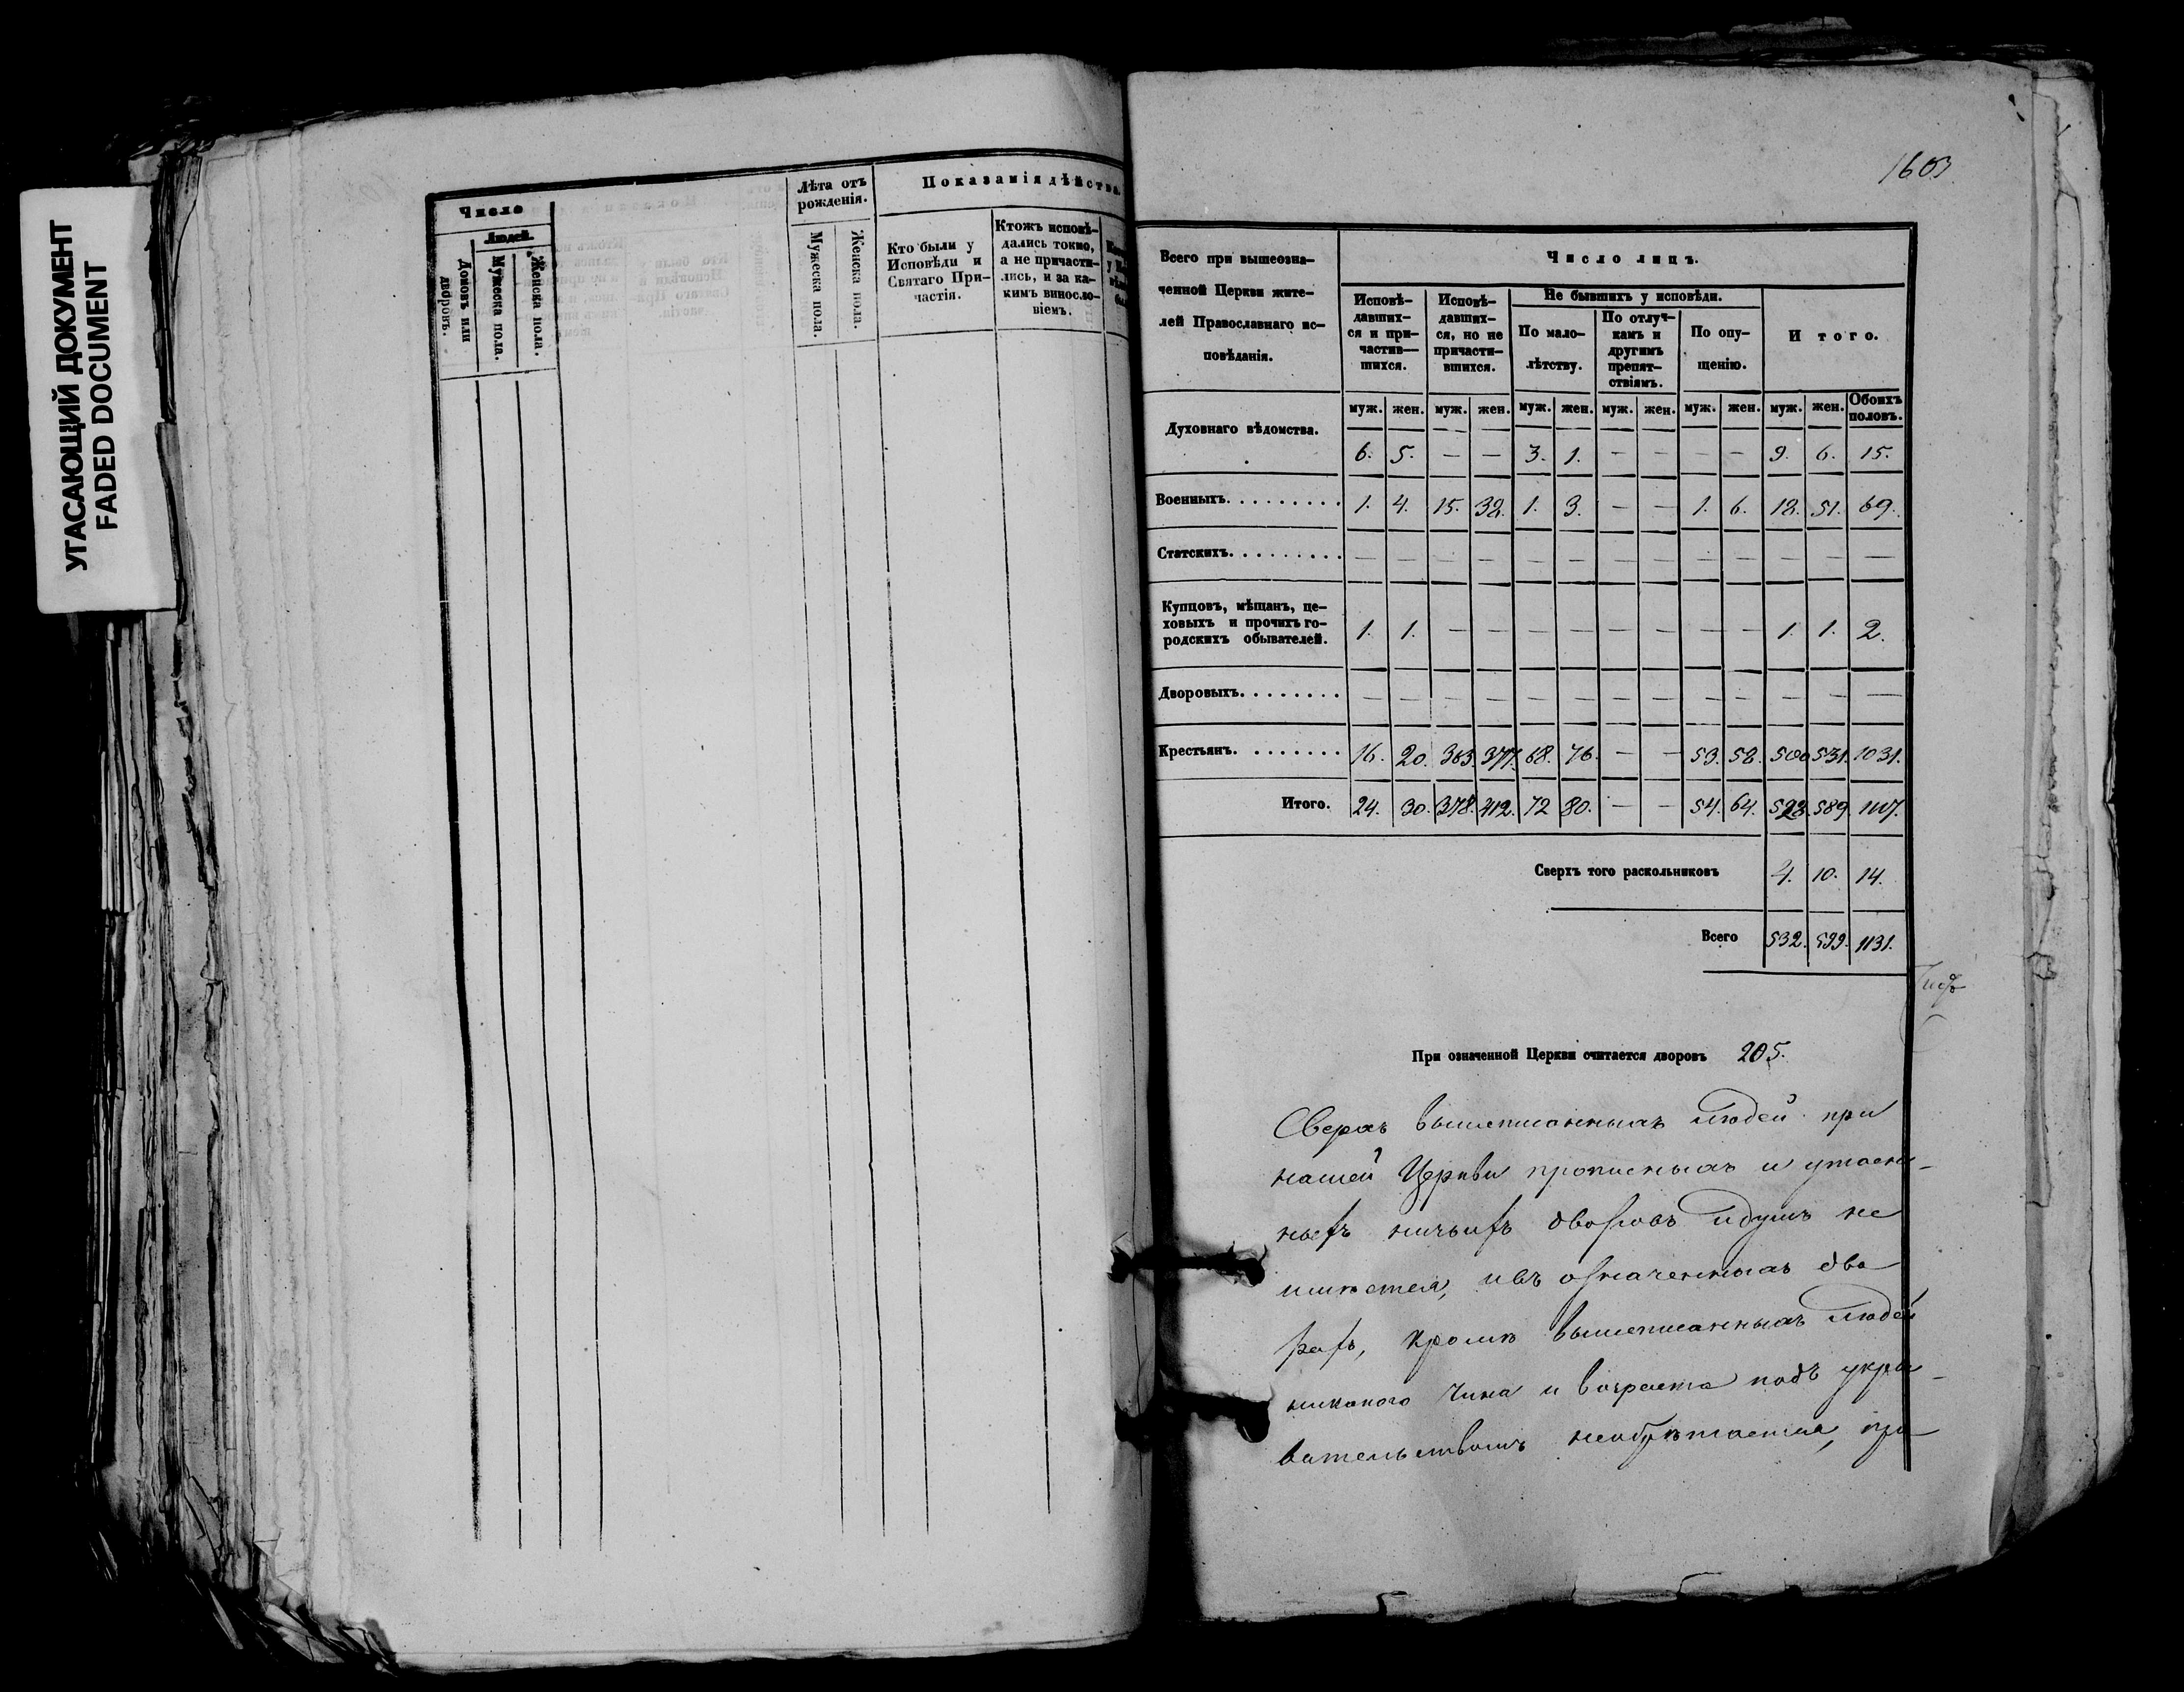 УГАСАЮЩИЙ ДОКУМЕНТ
FADED DOCUMENT
Число
Людей.
Домовъ или дворовъ.
Мужеска пола.
Женска пола.
Лѣта отъ рожденія.
Мужеска пола.
Женска пола.
Показанія дѣйства.
Кто были у
Исповѣди и
Святаго При-
частія.
Ктожъ исповѣ-
дались токмо,
а не причасти-
лись, и за ка-
кимъ винosло-
віемъ.
1603
Всего при вышеозна-
ченной Церкви жите-
лей Православнаго ис-
повѣданія.
Число лицъ.
Исповѣ-
давших-
ся и при-
частив-
шихся.
Исповѣ-
давших-
ся, но не
причасти-
вшихся.
Не бывшихъ у исповѣди.
По мало-
лѣтству.
По отлуч-
камъ и
другимъ
препят-
ствіямъ.
По опу-
щенію.
Итого.
муж. жен. муж. жен. муж. жен. муж. жен. муж. жен. муж. жен. Обоихъ половъ.
Духовнаго вѣдомства. 6. 5. — — 3. 1. — — — — 9. 6. 15.
Военныхъ. 1. 4. 15. 32. 1. 3. — — 1. 6. 18. 51. 69.
Статскихъ. — — — — — — — — — — — — —
Купцовъ, мѣщанъ, це-
ховыхъ и прочихъ го-
родскихъ обывателей. 1. 1. — — — — — — — — 1. 1. 2.
Дворовыхъ. — — — — — — — — — — — — —
Крестьянъ. 16. 20. 363. 377. 68. 76. — — 53. 58. 500 531. 1031.
Итого. 24. 30. 378. 412. 72 80. — — 54. 64. 528. 589. 1117.
Сверхъ того раскольниковъ 4. 10. 14.
Всего 532. 599. 1131.
При означенной Церкви считается дворовъ 205.
Сверхъ вышеписанныхъ людей при
нашей Церкви прописныхъ и утаен-
ныхъ ничьихъ дворовъ и душъ не
имѣется, и въ означенныхъ дво
рахъ, кромѣ вышеписанныхъ людей
никакого чина и возраста подъ укры-
вательствомъ необрѣтается, при